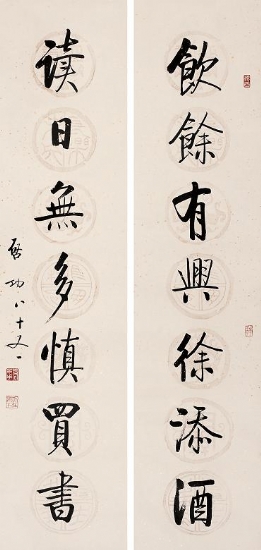 飲餘有興徐添酒
讀日無多慎買書
啟功八十又一